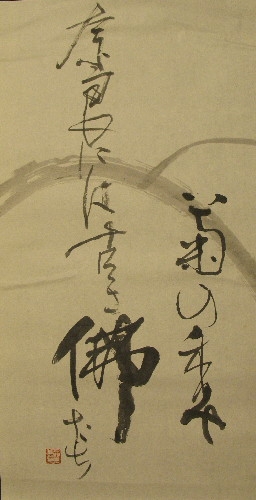 菊の香や
奈良には古き
佛たち